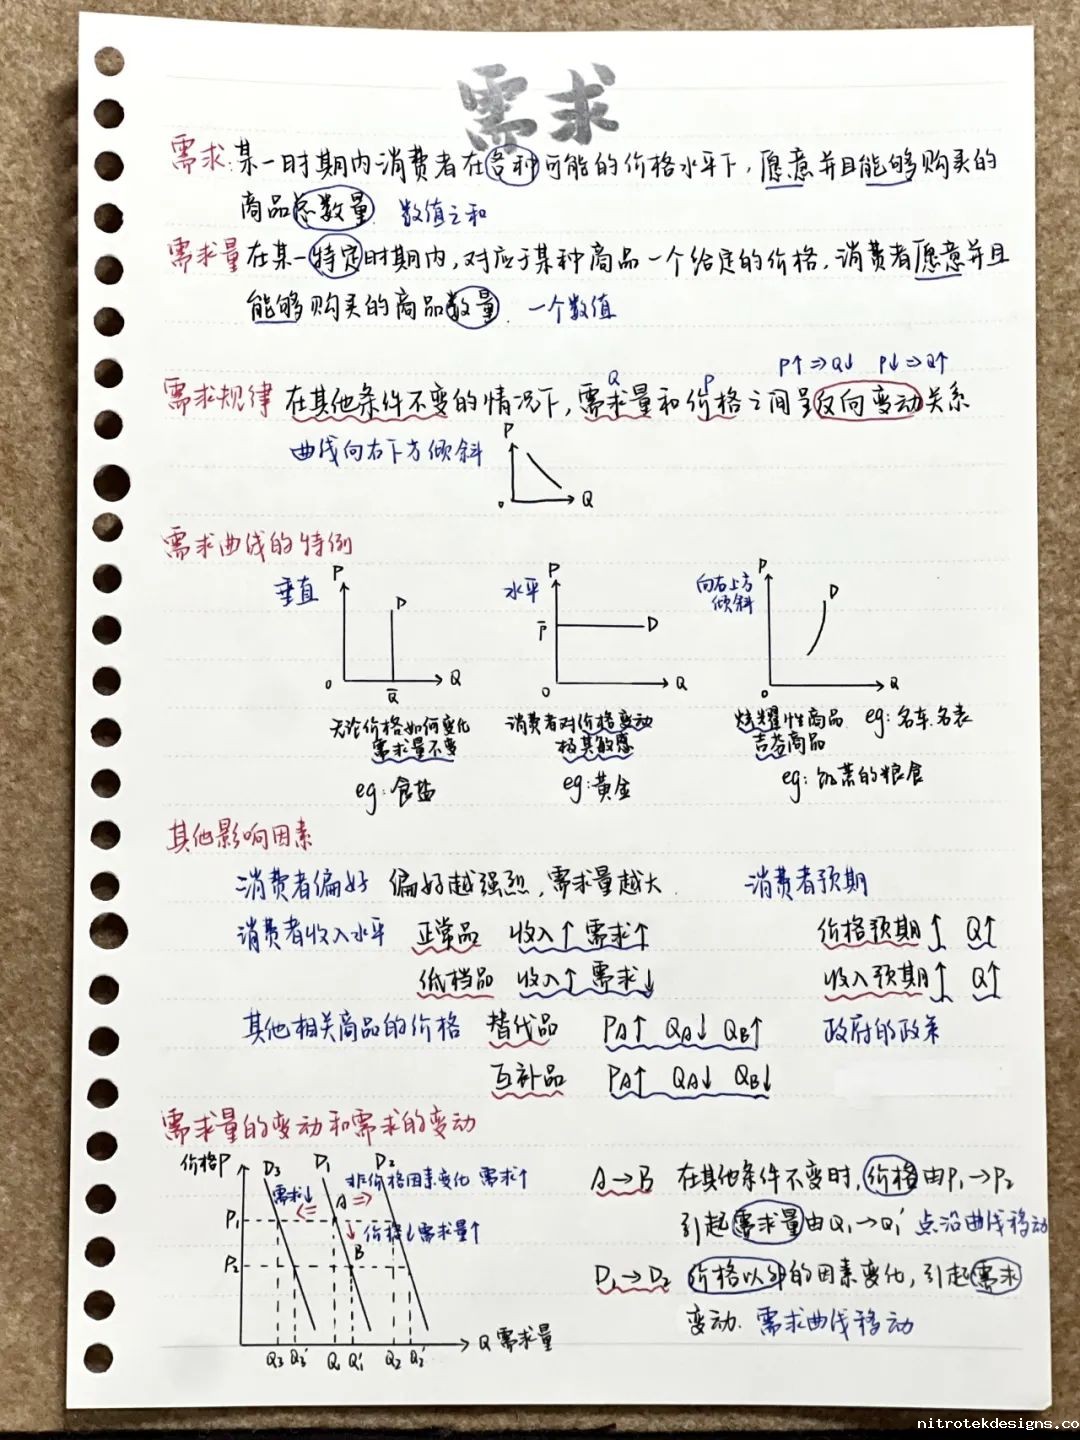 需求
需求:某一时期内消费者在各种可能的价格水平下,愿意并且能够购买的
商品总数量. 数值之和
需求量 在某一特定时期内,对应于某种商品一个给定的价格,消费者愿意并且
能够购买的商品数量. 一个数值
P↑⇒Q↓ P↓⇒Q↑
Q P
需求规律 在其他条件不变的情况下,需求量和价格之间呈反向变动关系
曲线向右下方倾斜
P
0 Q
需求曲线的特例
垂直 P D 0 Q̅ Q
水平 P P̅ D 0 Q
向右上方
倾斜 P D 0 Q
无论价格如何变化
需求量不变
eg:食盐
消费者对价格变动
极其敏感
eg:黄金
炫耀性商品 eg:名车.名表
吉芬商品
eg:饥荒的粮食
其他影响因素
消费者偏好 偏好越强烈,需求量越大. 消费者预期
消费者收入水平 正常品 收入↑需求↑ 价格预期↑ Q↑
低档品 收入↑需求↓ 收入预期↑ Q↑
其他相关商品的价格 替代品 PA↑ QA↓ QB↑ 政府的政策
互补品 PA↑ QA↓ QB↓
需求量的变动和需求的变动
价格P D3 D1 D2
非价格因素变化 需求↑
需求↓ A
P1 价格↓需求量↑
B
P2
Q3 Q3' Q1 Q1' Q2 Q2' Q 需求量
A→B 在其他条件不变时,价格由P1→P2
引起需求量由Q1→Q1' 点沿曲线移动
D1→D2 价格以外的因素变化,引起需求
变动. 需求曲线移动
nitrotekdesigns.co